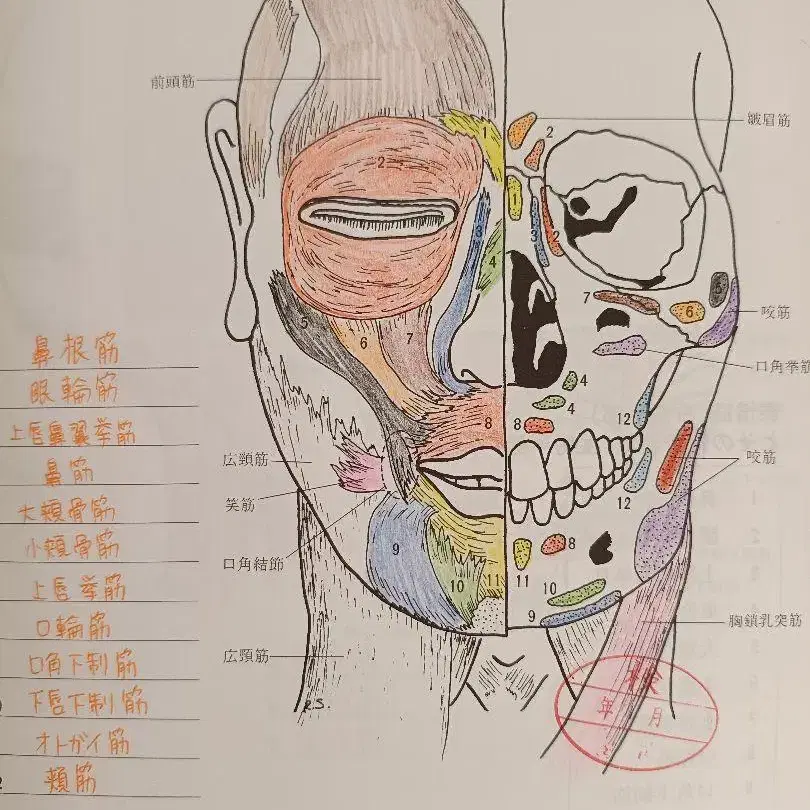 前頭筋
皺眉筋
咬筋
口角挙筋
広頸筋
笑筋
口角結節
広頸筋
咬筋
胸鎖乳突筋
鼻根筋
眼輪筋
上唇鼻翼挙筋
鼻筋
大頬骨筋
小頬骨筋
上唇挙筋
口輪筋
口角下制筋
下唇下制筋
オトガイ筋
頬筋
1
2
3
4
5
6
7
8
9
10
11
2
1
3
2
7
6
5
4
4
8
12
12
11
8
10
9
R.S.
年
月